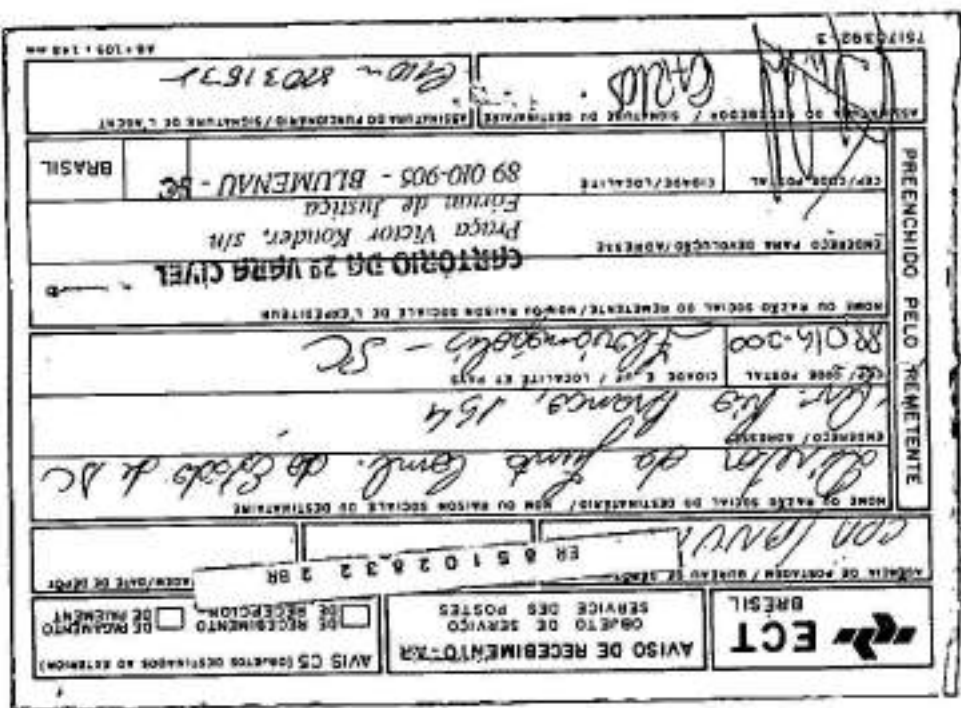 ECT
BRÉSIL
AVISO DE RECEBIMENTO-AR
OBJETO DE SERVIÇO
SERVICE DES POSTES
AVIS C5 (OBJETOS DESTINADOS AO EXTERIOR)
DE RECEBIMENTO
DE RECEPCION
DE PAGAMENTO
DE PAIEMENT
AGÊNCIA DE POSTAGEM / BUREAU DE DÉPÔT
/DATE DE DÉPÔT
ER 85102832 2 BR
NOME OU RAZÃO SOCIAL DO DESTINATÁRIO/ NOM OU RAISON SOCIALE DU DESTINATAIRE
Diretor da Junta Coml. do Estado de SC
ENDEREÇO / ADRESSE
Av. Rio Branco, 154
CEP/ CODE POSTAL
CIDADE E UF / LOCALITÉ ET PAYS
88 014-300
Florianópolis - SC
PREENCHIDO PELO REMETENTE
NOME OU RAZÃO SOCIAL DO REMETENTE/ NOM OU RAISON SOCIALE DE L'EXPÉDITEUR
CARTÓRIO DA 2ª VARA CÍVEL
ENDEREÇO PARA DEVOLUÇÃO/ADRESSE
Praça Victor Konder, s/n
Fórum de Justiça
CEP/CODE POSTAL
CIDADE/LOCALITÉ
89 010-905 - BLUMENAU - SC
BRASIL
ASSINATURA DO RECEBEDOR / SIGNATURE DU DESTINATAIRE
ASSINATURA DO FUNCIONÁRIO/SIGNATURE DE L'AGENT
75170392-3
A6 = 105 x 148 mm